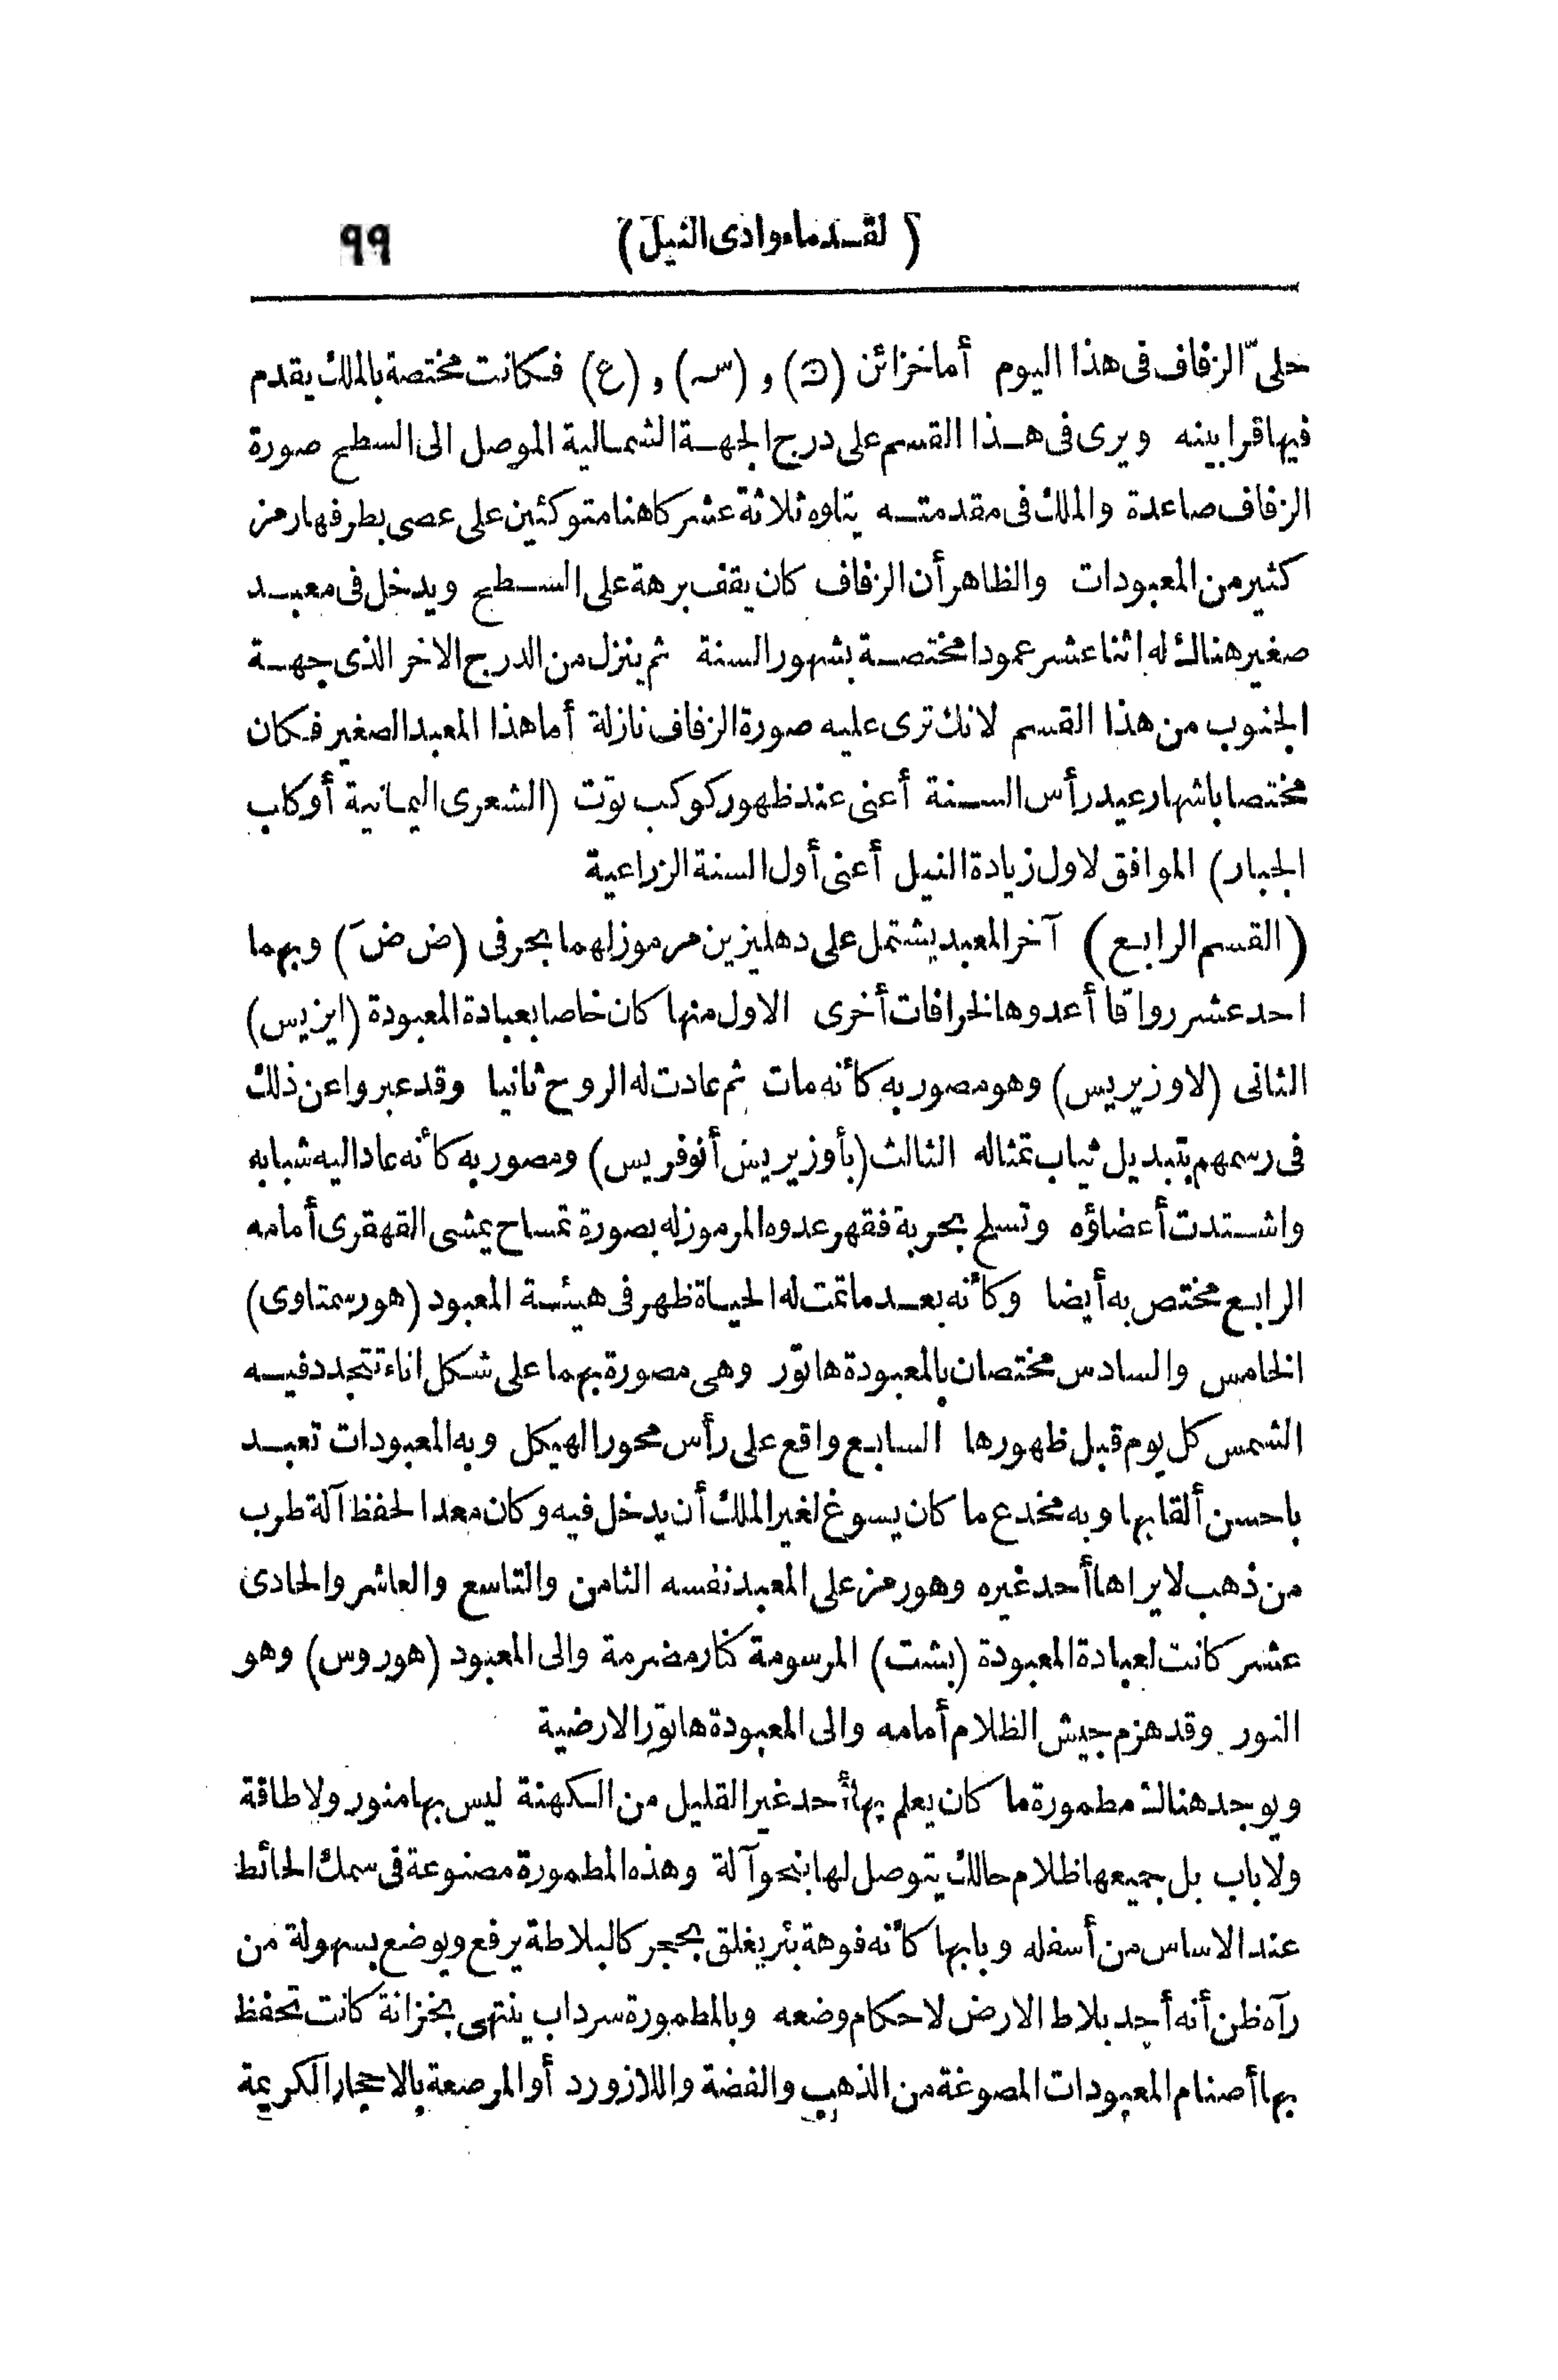 (لقدماء وادى النيل) ٩٩
حلىّ الزفاف فى هذا اليوم أما خزائن (ن) و (س) و (ع) فكانت مختصة بالملك يقدم
فيها قرابينه ويرى فى هذا القسم على درج الجهة الشمالية الموصل الى السطح صورة
الزفاف صاعدة والملك فى مقدمته يتلوه ثلاثة عشر كاهنا متوكئين على عصى بطرفها رمز
كثير من المعبودات والظاهر أن الزفاف كان يقف برهة على السطح ويدخل فى معبد
صغير هنالك له اثنا عشر عمودا مختصة بشهور السنة ثم ينزل من الدرج الاخر الذى جهة
الجنوب من هذا القسم لانك ترى عليه صورة الزفاف نازلة أما هذا المعبد الصغير فكان
مختصا باشهار عيد رأس السنة أعنى عند ظهور كوكب توت (الشعرى اليمانية أو كلب
الجبار) الموافق لاول زيادة النيل أعنى أول السنة الزراعية
(القسم الرابع) آخر المعبد يشتمل على دهليزين مرموز لهما بحرفى (ض ضَ) وبهما
احد عشر رواقا أعدوها لخرافات أخرى الاول منها كان خاصا بعبادة المعبودة (ايزيس)
الثانى (لاوزيريس) وهو مصور به كأنه مات ثم عادت له الروح ثانيا وقد عبروا عن ذلك
فى رسمهم بتبديل ثياب تمثاله الثالث (بأوزيريس أنوفريس) ومصور به كأنه عاد اليه شبابه
واشتدت أعضاؤه وتسلح بحربة فقهر عدوه المرموز له بصورة تمساح يمشى القهقرى أمامه
الرابع مختص به أيضا وكأنه بعد ما تمت له الحياة ظهر فى هيئة المعبود (هورسمتاوى)
الخامس والسادس مختصان بالمعبودة هاتور وهى مصورة بهما على شكل اناء تتجدد فيه
الشمس كل يوم قبل ظهورها السابع واقع على رأس محور الهيكل وبه المعبودات تعبد
باحسن ألقابها وبه مخدع ما كان يسوغ لغير الملك أن يدخل فيه وكان معدا لحفظ آلة طرب
من ذهب لا يراها أحد غيره وهو رمز على المعبد نفسه الثامن والتاسع والعاشر والحادى
عشر كانت لعبادة المعبودة (بشت) المرسومة كنار مضرمة والى المعبود (هوروس) وهو
النور وقد هزم جيش الظلام أمامه والى المعبودة هاتور الارضية
ويوجد هنالك مطمورة ما كان يعلم بها أحد غير القليل من الكهنة ليس بها منور ولا طاقة
ولا باب بل جميعها ظلام حالك يتوصل لها بنحو آلة وهذه المطمورة مصنوعة فى سمك الحائط
عند الاساس من أسفله وبابها كأنه فوهة بئر يغلق بحجر كالبلاطة يرفع ويوضع بسهولة من
رآه ظن أنه أحد بلاط الارض لاحكام وضعه وبالمطمورة سرداب ينتهى بخزانة كانت تحفظ
بها أصنام المعبودات المصوغة من الذهب والفضة واللازورد أو المرصعة بالاحجار الكريمة